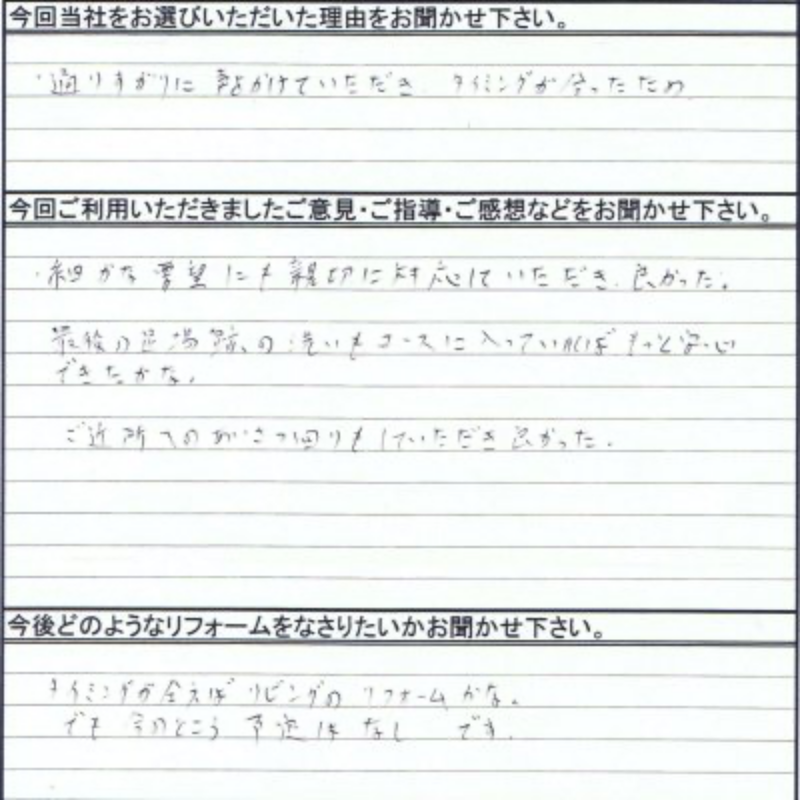 今回当社をお選びいただいた理由をお聞かせ下さい。
・通りすがりに声をかけていただき タイミングが合ったため
今回ご利用いただきましたご意見・ご指導・ご感想などをお聞かせ下さい。
・細かな要望にも親切に対応していただき、良かった。
最後の足場跡、の洗いもコースに入っていればもっと安心
できたかな。
ご近所へのあいさつ回りもしていただき良かった。
今後どのようなリフォームをなさりたいかお聞かせ下さい。
タイミングが合えばリビングのリフォームかな。
でも今のところ予定はなし です。